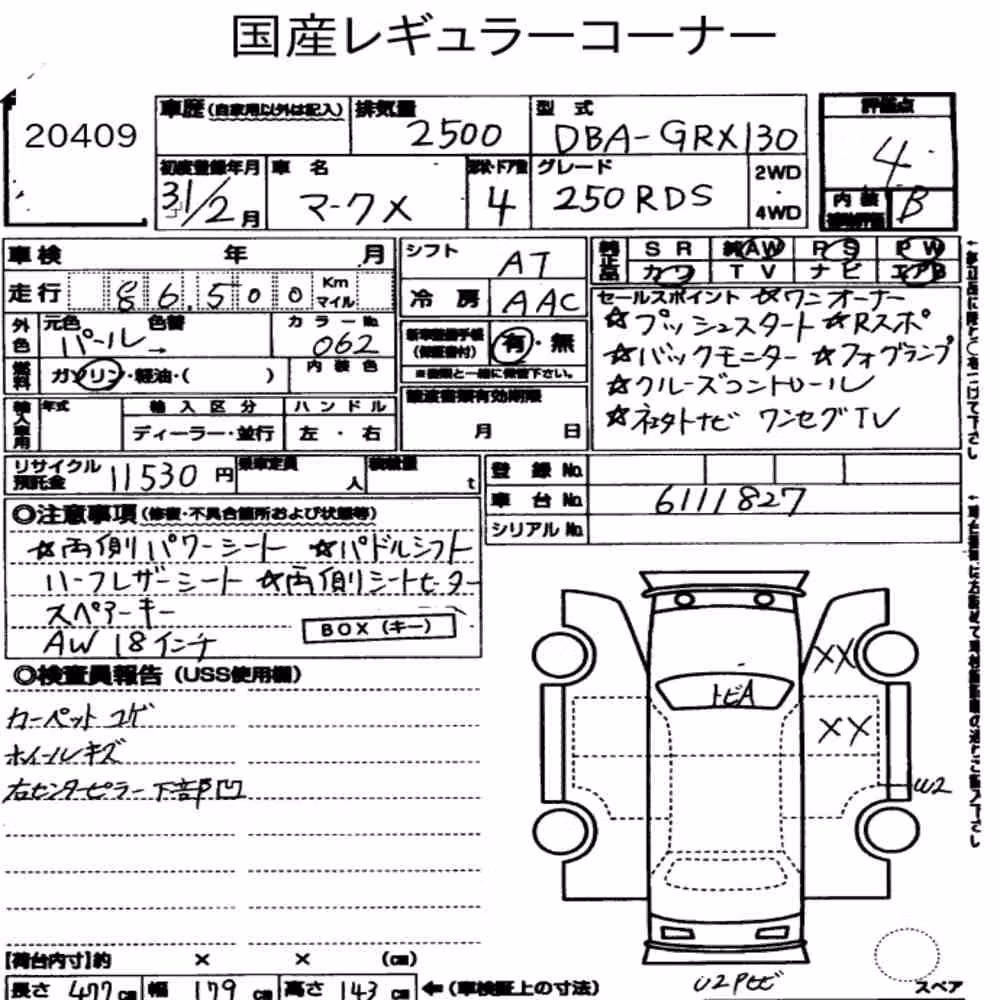 国産レギュラーコーナー
20409
車歴(自家用以外は記入)
排気量
2500
型 式
DBA-GRX130
評価点
4
初度登録年月
31/2月
車 名
マークX
形状・ドア数
4
グレード
250RDS
2WD
・
4WD
内 装
B
車検 年 月
走行 86,500 Km マイル
外色 元色 色替
パール→
カラーNo.
062
燃料 ガソリン・軽油・( )
内 装 色
輸入車用 年式
輸 入 区 分
ディーラー・並行
ハ ン ド ル
左 ・ 右
シフト
AT
冷 房
AAC
新車整備手帳
(保証書付)
有・無
※書類と一緒に保管下さい。
譲渡書類有効期限
月 日
純正品
SR 純AW PS PW
カワ TV ナビ エアB
セールスポイント ☆ワンオーナー
☆プッシュスタート ☆Rスポ
☆バックモニター ☆フォグランプ
☆クルーズコントロール
☆ネクストナビ ワンセグTV
リサイクル
預託金
11530 円
乗車定員
人
積載量
t
登 録 No.
車 台 No.
6111827
シリアル No.
◎注意事項(修復・不具合箇所および状態等)
☆両側パワーシート ☆パドルシフト
ハーフレザーシート ☆両側シートヒーター
スペアーキー
AW 18インチ
BOX(キー)
◎検査員報告(USS使用欄)
カーペット コゲ
ホイールキズ
右センターピラー下部凹
トビA
XX
XX
W2
U2Pセビ
スペア
【荷台内寸】約 × × (㎝)
長さ 477㎝ 幅 179㎝ 高さ 143㎝ ←(車検証上の寸法)